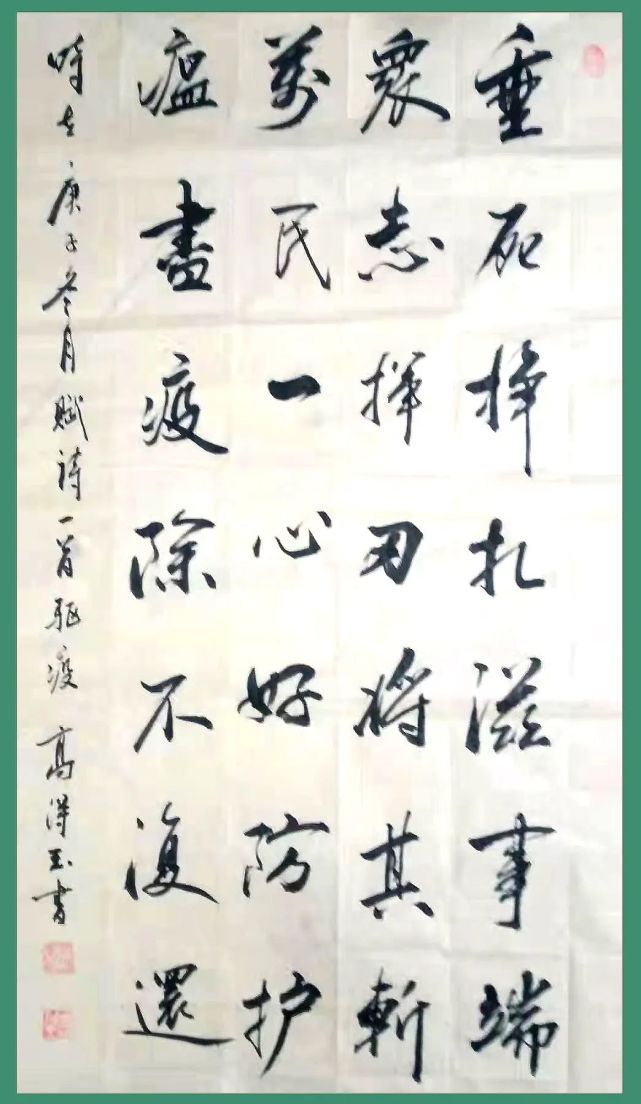 垂死掙扎滋事端
衆志揮刃將其斬
萬民一心好防护
瘟盡疫除不復還
時在庚子冬月賦詩一首驅疫 高得玉書